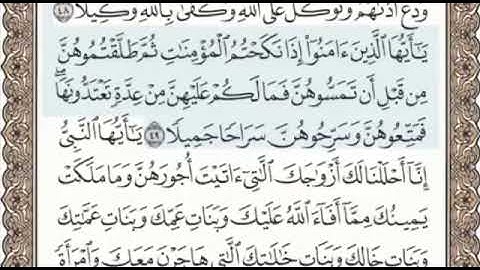 ودع أذىهم وتوكل على الله وكفى بالله وكيلا ٤٨
يَٰٓأَيُّهَا ٱلَّذِينَ ءَامَنُوٓا۟ إِذَا نَكَحْتُمُ ٱلْمُؤْمِنَٰتِ ثُمَّ طَلَّقْتُمُوهُنَّ
مِن قَبْلِ أَن تَمَسُّوهُنَّ فَمَا لَكُمْ عَلَيْهِنَّ مِنْ عِدَّةٍ تَعْتَدُّونَهَا ۖ
فَمَتِّعُوهُنَّ وَسَرِّحُوهُنَّ سَرَاحًا جَمِيلًا ٤٩ يَٰٓأَيُّهَا ٱلنَّبِىُّ
إِنَّآ أَحْلَلْنَا لَكَ أَزْوَٰجَكَ ٱلَّٰتِىٓ ءَاتَيْتَ أُجُورَهُنَّ وَمَا مَلَكَتْ
يَمِينُكَ مِمَّآ أَفَآءَ ٱللَّهُ عَلَيْكَ وَبَنَاتِ عَمِّكَ وَبَنَاتِ عَمَّٰتِكَ
وَبَنَاتِ خَالِكَ وَبَنَاتِ خَٰلَٰتِكَ ٱلَّٰتِى هَاجَرْنَ مَعَكَ وَٱمْرَأَةً